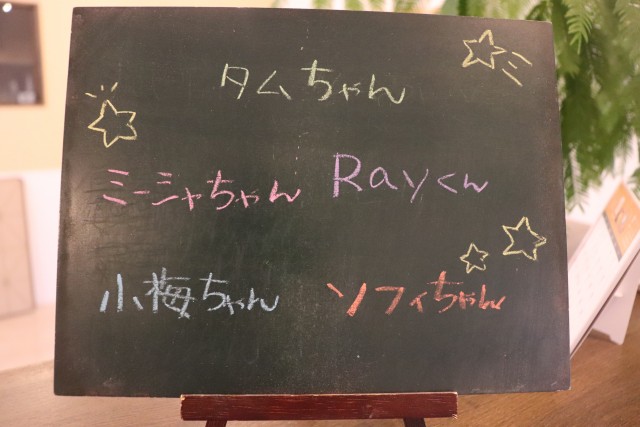 タムちゃん
ミーシャちゃん Rayくん
小梅ちゃん ソフィちゃん